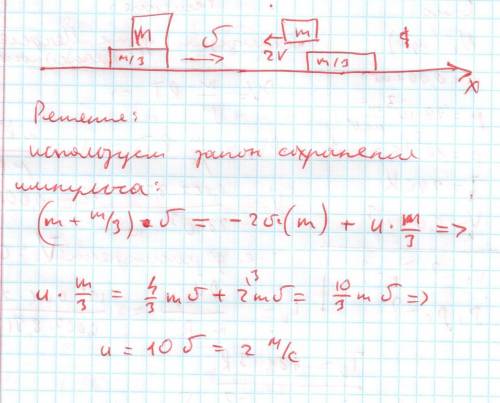 m m
m/3 υ 2υ m/3 x
Решение:
используем закон сохранения
импульса:
(m + m/3) · υ = -2υ·(m) + u · m/3 =>
u · m/3 = 4/3 mυ + 2mυ = 10/3 mυ =>
u = 10υ = 2 м/с